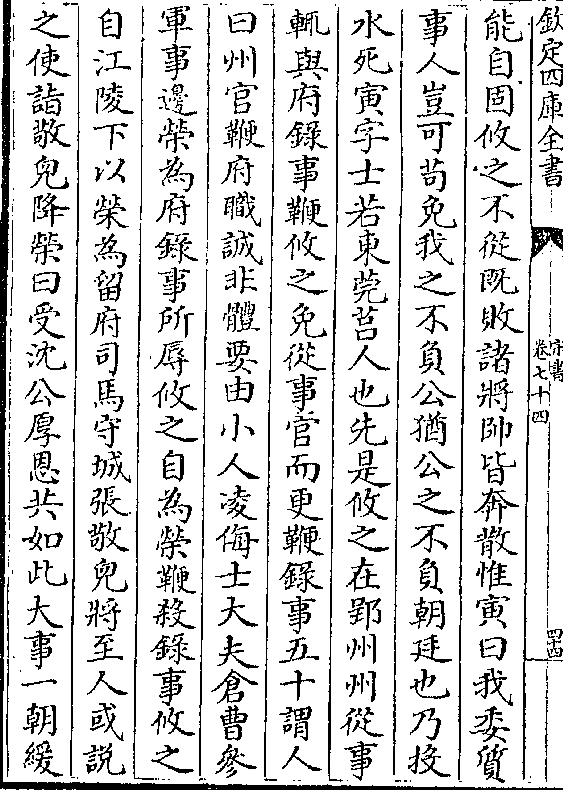 欽定四庫全書
宋書
卷七十四
四十四
能自固攸之不從既敗諸將帥皆奔散惟寅曰我委質
事人豈可苟免我之不負公猶公之不負朝廷也乃投
水死寅字士若東莞莒人也先是攸之在郢州州從事
輒與府錄事鞭攸之免從事官而更鞭錄事五十謂人
曰州官鞭府職誠非體要由小人凌侮士大夫倉曹參
軍事邊榮為府錄事所辱攸之自為榮鞭殺錄事攸之
自江陵下以榮為留府司馬守城張敬兒將至人或說
之使詣敬兒降榮曰受沈公厚恩共如此大事一朝緩